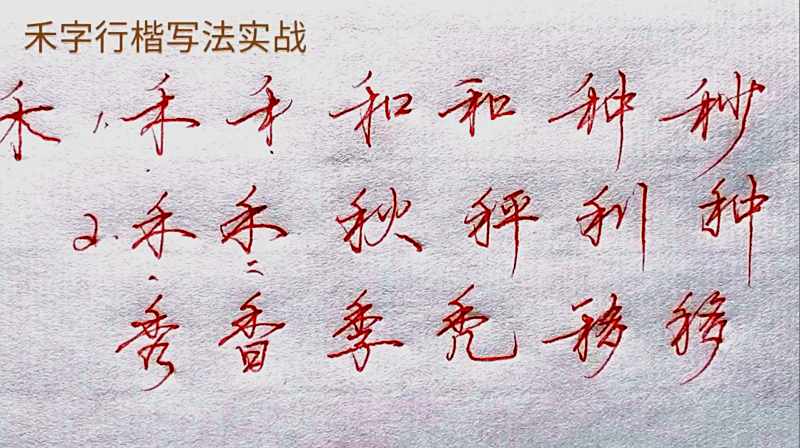 禾字行楷写法实战
禾 1. 禾 禾 和 和 种 秒
2. 禾 禾 秋 秤 利 种
秀 香 季 秃 移 移